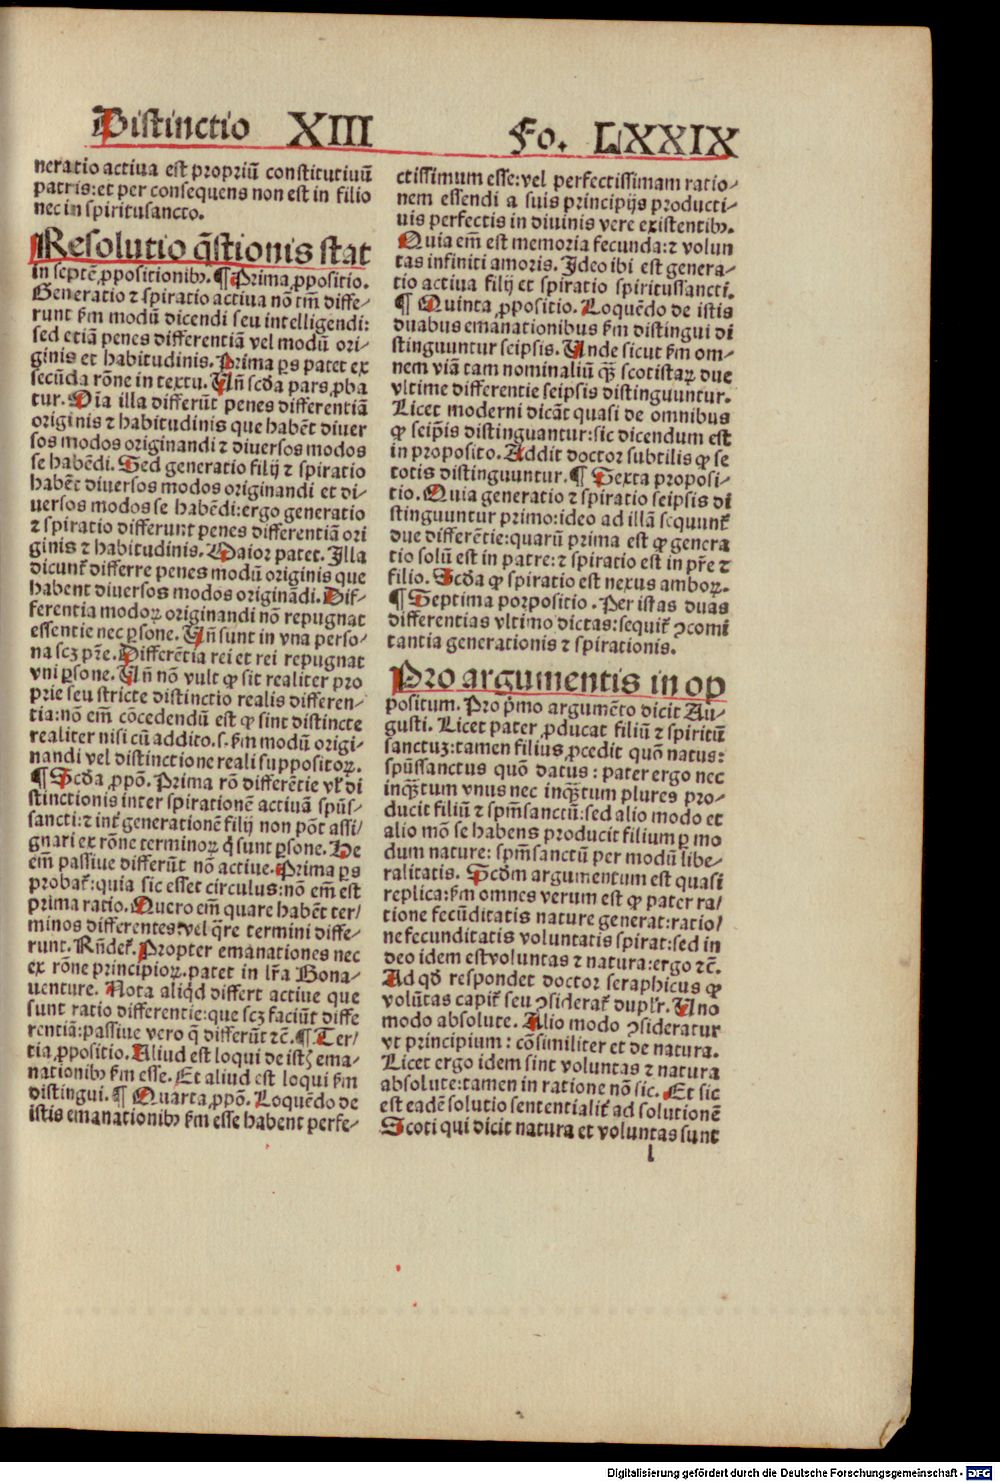 Distinctio XIII Fo. LXXIX
neratio actiua est propriũ constitutiuũ
patris:et per consequens non est in filio
nec in spiritusancto.
Resolutio q̃stionis stat
in septẽ ꝓpositionibꝰ. ¶ Prima ꝓpositio.
Generatio ⁊ spiratio actiua nõ tm̃ diffe-
runt ẜm modũ dicendi seu intelligendi:
sed etiã penes differentiã vel modũ ori-
ginis et habitudinis. Prima ꝑs patet ex
secũda rõne in textu. Uñ scđa pars ꝓba
tur. Oĩa illa differũt penes differentiã
originis ⁊ habitudinis que habẽt diuer
sos modos originandi ⁊ diuersos modos
se habẽdi. Sed generatio filij ⁊ spiratio
habẽt diuersos modos originandi et di-
uersos modos se habẽdi:ergo generatio
⁊ spiratio differunt penes differentiã ori
ginis ⁊ habitudinis. Maior patet. Illa
dicunt᷑ differre penes modũ originis que
habent diuersos modos originãdi. Dif-
ferentia modoꝝ originandi nõ repugnat
essentie nec ꝑsone. Uñ sunt in vna perso-
na scꝫ pr̃e. Differẽtia rei et rei repugnat
vni ꝑsone. Uñ nõ vult ꝙ sit realiter pro
prie seu stricte distinctio realis differen-
tia:nõ em̃ cõcedendũ est ꝙ sint distincte
realiter nisi cũ addito.s.ẜm modũ origi-
nandi vel distinctione reali suppositoꝝ.
¶ Scđa ꝓpõ. Prima rõ differẽtie vl̃ di
stinctionis inter spirationẽ actiuã spũs-
sancti:⁊ int᷑ generationẽ filij non põt assi-
gnari ex rõne terminoꝝ q̃ sunt ꝑsone. He
em̃ passiue differũt nõ actiue. Prima ꝑs
probat᷑:quia sic esset circulus:nõ em̃ est
prima ratio. Quero em̃ quare habẽt ter-
minos differentes:vel q̃re termini diffe-
runt. Rñdet᷑. Propter emanationes nec
ex rõne principioꝝ.patet in lr̃a Bona-
uenture. Nota aliqđ differt actiue que
sunt ratio differentie:que scꝫ faciũt diffe
rentiã:passiue vero q̃ differũt ⁊c̃. ¶ Ter-
tia ꝓpositio. Aliud est loqui de istꝭ ema-
nationibꝰ ẜm esse. Et aliud est loqui ẜm
distingui. ¶ Quarta ꝓpõ. Loquẽdo de
istis emanationibꝰ ẜm esse habent perfe-
ctissimum esse:vel perfectissimam ratio-
nem essendi a suis principijs producti-
uis perfectis in diuinis vere existentibꝰ.
Quia em̃ est memoria fecunda:⁊ volun
tas infiniti amoris. Ideo ibi est genera-
tio actiua filij et spiratio spiritussancti.
¶ Quinta ꝓpositio. Loquẽdo de istis
duabus emanationibus ẜm distingui di
stinguuntur seipsis. Unde sicut ẜm om-
nem viã tam nominaliũ qꝫ̃ scotistaꝝ due
vltime differentie seipsis distinguuntur.
Licet moderni dicãt quasi de omnibus
ꝙ seip̃is distinguantur:sic dicendum est
in proposito. Addit doctor subtilis ꝙ se
totis distinguuntur. ¶ Sexta proposi-
tio. Quia generatio ⁊ spiratio seipsis di
stinguuntur primo:ideo ad illã sequunt᷑
due differẽtie:quarũ prima est ꝙ genera
tio solũ est in patre:⁊ spiratio est in pr̃e ⁊
filio. Scđa ꝙ spiratio est nexus amboꝝ.
¶ Septima porpositio. Per istas duas
differentias vltimo dictas:sequit᷑ ꝯcomi
tantia generationis ⁊ spirationis.
Pro argumentis in op
positum. Pro p̃mo argumẽto dicit Au-
gusti. Licet pater ꝓducat filiũ ⁊ spiritũ
sanctuꝫ:tamen filius ꝓcedit quõ natus:
spũssanctus quõ datus: pater ergo nec
inqꝫ̃tum vnus nec inqꝫ̃tum plures pro-
ducit filiũ ⁊ spm̃sanctũ:sed alio modo et
alio mõ se habens producit filium ꝑ mo
dum nature: spm̃sanctũ per modũ libe-
ralitatis. Scđm argumentum est quasi
replica:ẜm omnes verum est ꝙ pater ra-
tione fecũditatis nature generat:ratio-
ne fecunditatis voluntatis spirat:sed in
deo idem est voluntas ⁊ natura:ergo ⁊c̃.
Ad qđ respondet doctor seraphicus ꝙ
volũtas capit᷑ seu ꝯsiderat᷑ duplr̃. Uno
modo absolute. Alio modo ꝯsideratur
vt principium: cõsimiliter et de natura.
Licet ergo idem sint voluntas ⁊ natura
absolute:tamen in ratione nõ sic. Et sic
est eadẽ solutio sententialit᷑ ad solutionẽ
Scoti qui dicit natura et voluntas sunt
l
Digitalisierung gefördert durch die Deutsche Forschungsgemeinschaft - DFG